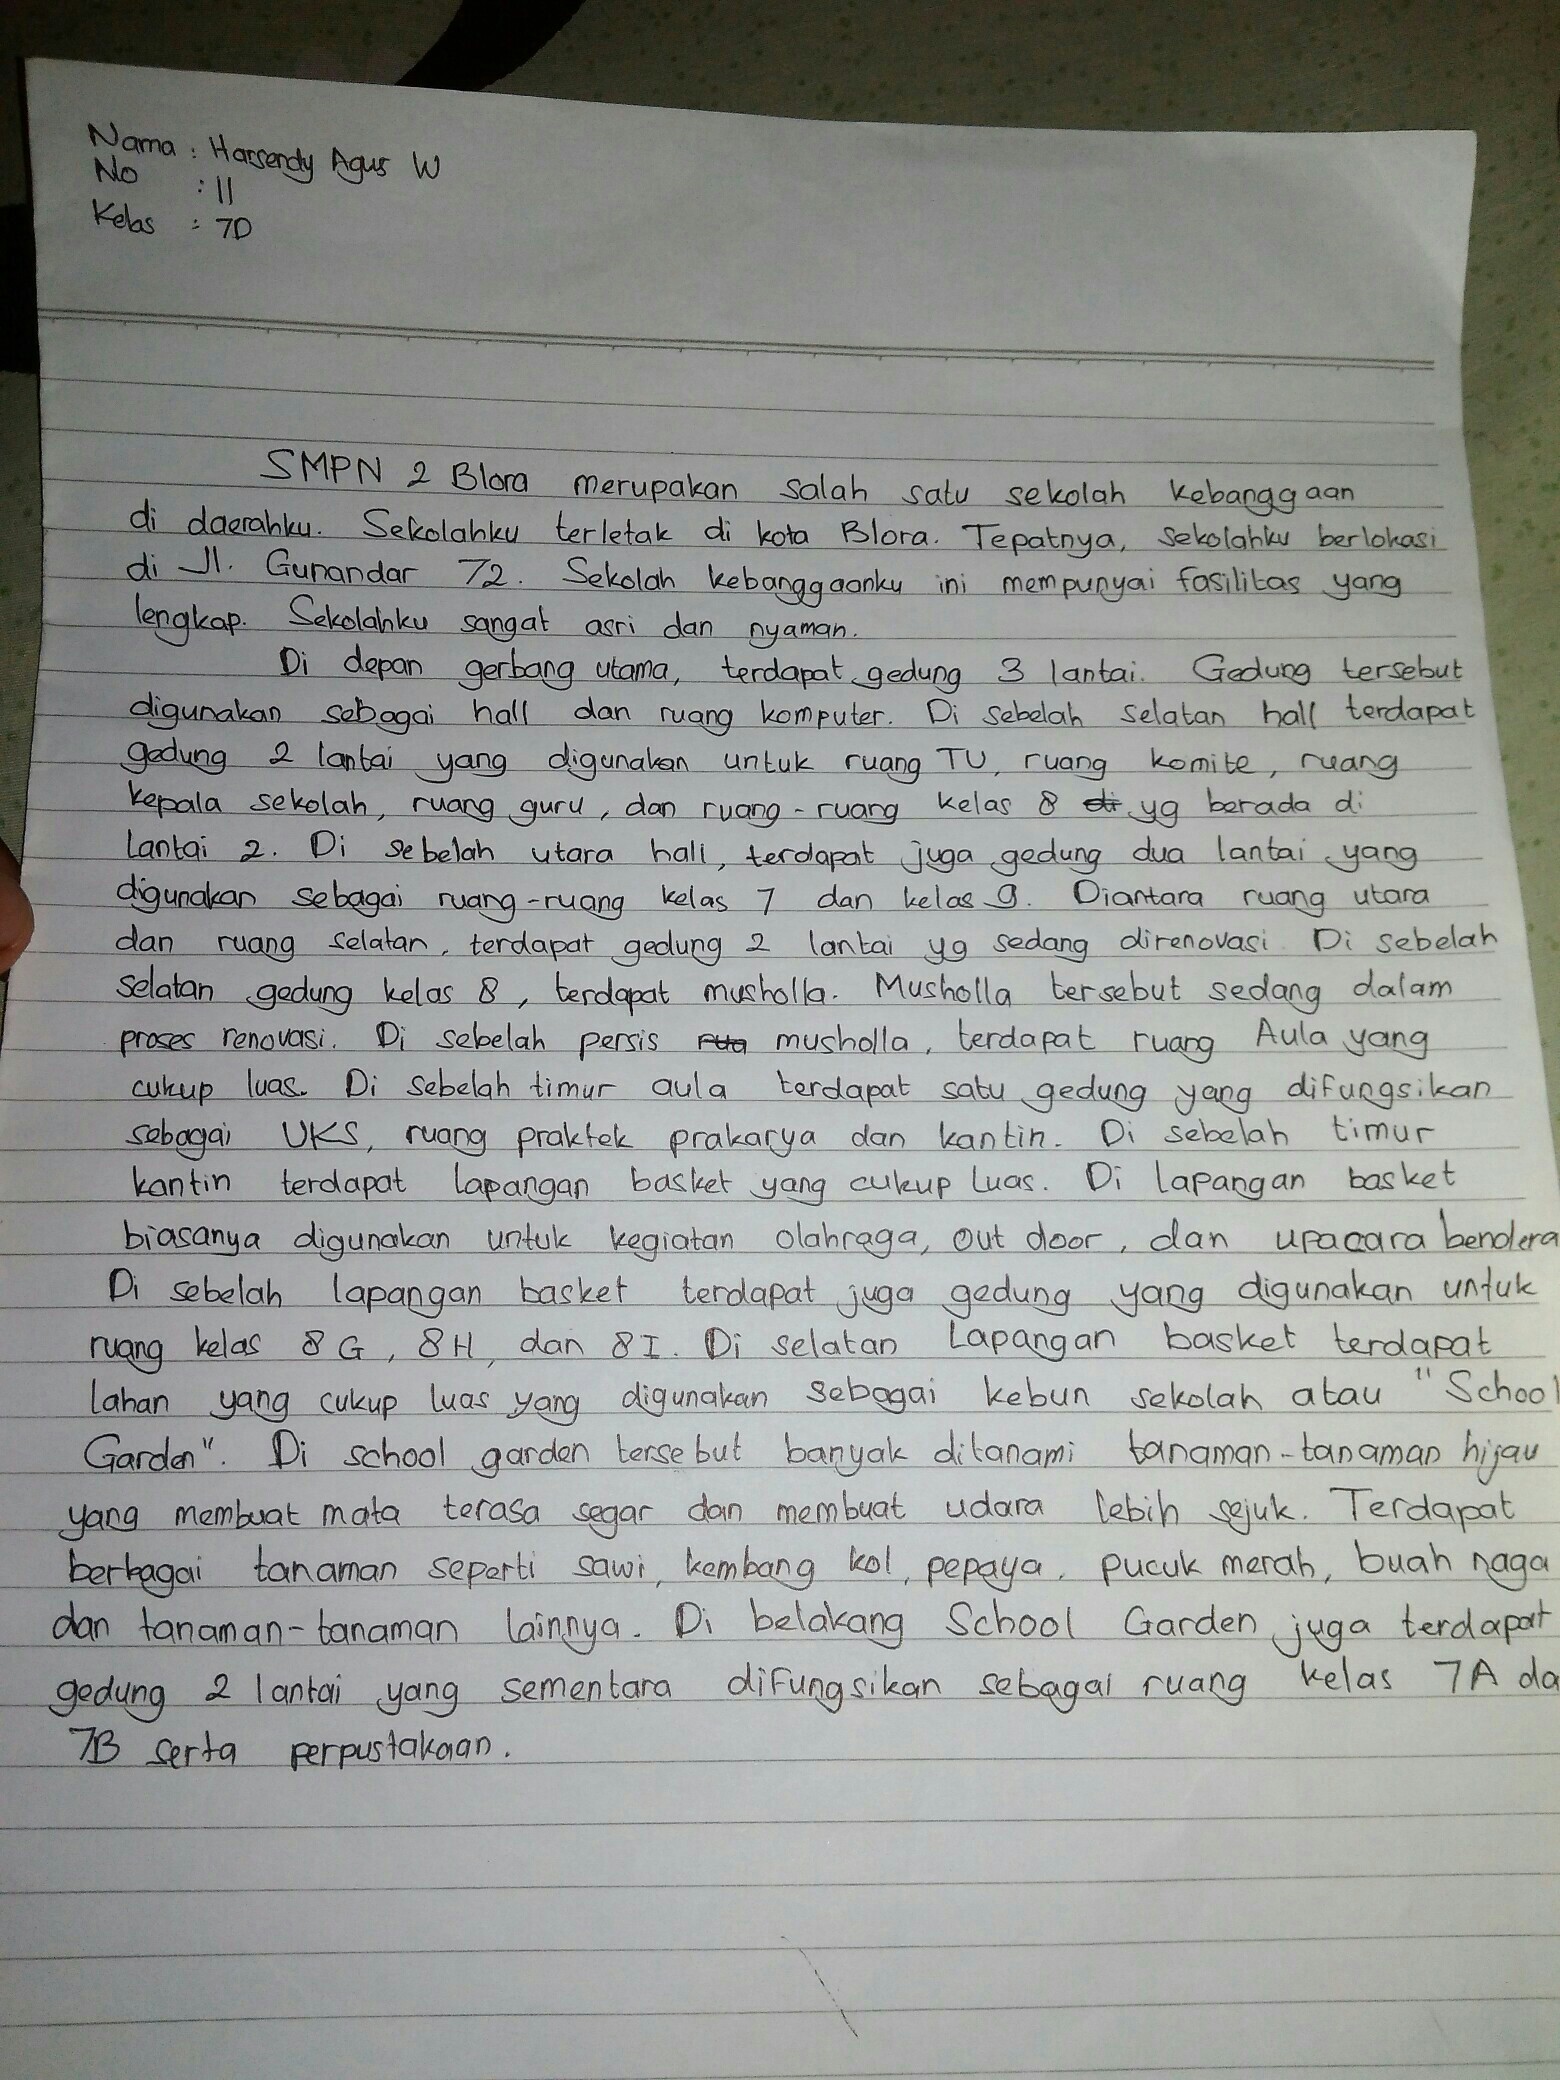 Nama : Harsendy Agus W
No : 11
Kelas : 7D
SMPN 2 Blora merupakan salah satu sekolah kebanggaan
di daerahku. Sekolahku terletak di kota Blora. Tepatnya, sekolahku berlokasi
di Jl. Gunandar 72. Sekolah kebanggaanku ini mempunyai fasilitas yang
lengkap. Sekolahku sangat asri dan nyaman.
Di depan gerbang utama, terdapat gedung 3 lantai. Gedung tersebut
digunakan sebagai hall dan ruang komputer. Di sebelah selatan hall terdapat
gedung 2 lantai yang digunakan untuk ruang TU, ruang komite, ruang
kepala sekolah, ruang guru, dan ruang-ruang kelas 8 di yg berada di
lantai 2. Di sebelah utara hall, terdapat juga gedung dua lantai yang
digunakan sebagai ruang-ruang kelas 7 dan kelas 9. Diantara ruang utara
dan ruang selatan, terdapat gedung 2 lantai yg sedang direnovasi. Di sebelah
selatan gedung kelas 8, terdapat musholla. Musholla tersebut sedang dalam
proses renovasi. Di sebelah persis musholla, terdapat ruang Aula yang
cukup luas. Di sebelah timur aula terdapat satu gedung yang difungsikan
sebagai UKS, ruang praktek prakarya dan kantin. Di sebelah timur
kantin terdapat lapangan basket yang cukup luas. Di lapangan basket
biasanya digunakan untuk kegiatan olahraga, out door, dan upacara bendera
Di sebelah lapangan basket terdapat juga gedung yang digunakan untuk
ruang kelas 8G, 8H, dan 8I. Di selatan Lapangan basket terdapat
lahan yang cukup luas yang digunakan sebagai kebun sekolah atau "School
Garden". Di school garden tersebut banyak ditanami tanaman-tanaman hijau
yang membuat mata terasa segar dan membuat udara lebih sejuk. Terdapat
berbagai tanaman seperti sawi, kembang kol, pepaya, pucuk merah, buah naga
dan tanaman-tanaman lainnya. Di belakang School Garden juga terdapat
gedung 2 lantai yang sementara difungsikan sebagai ruang kelas 7A da
7B serta perpustakaan.